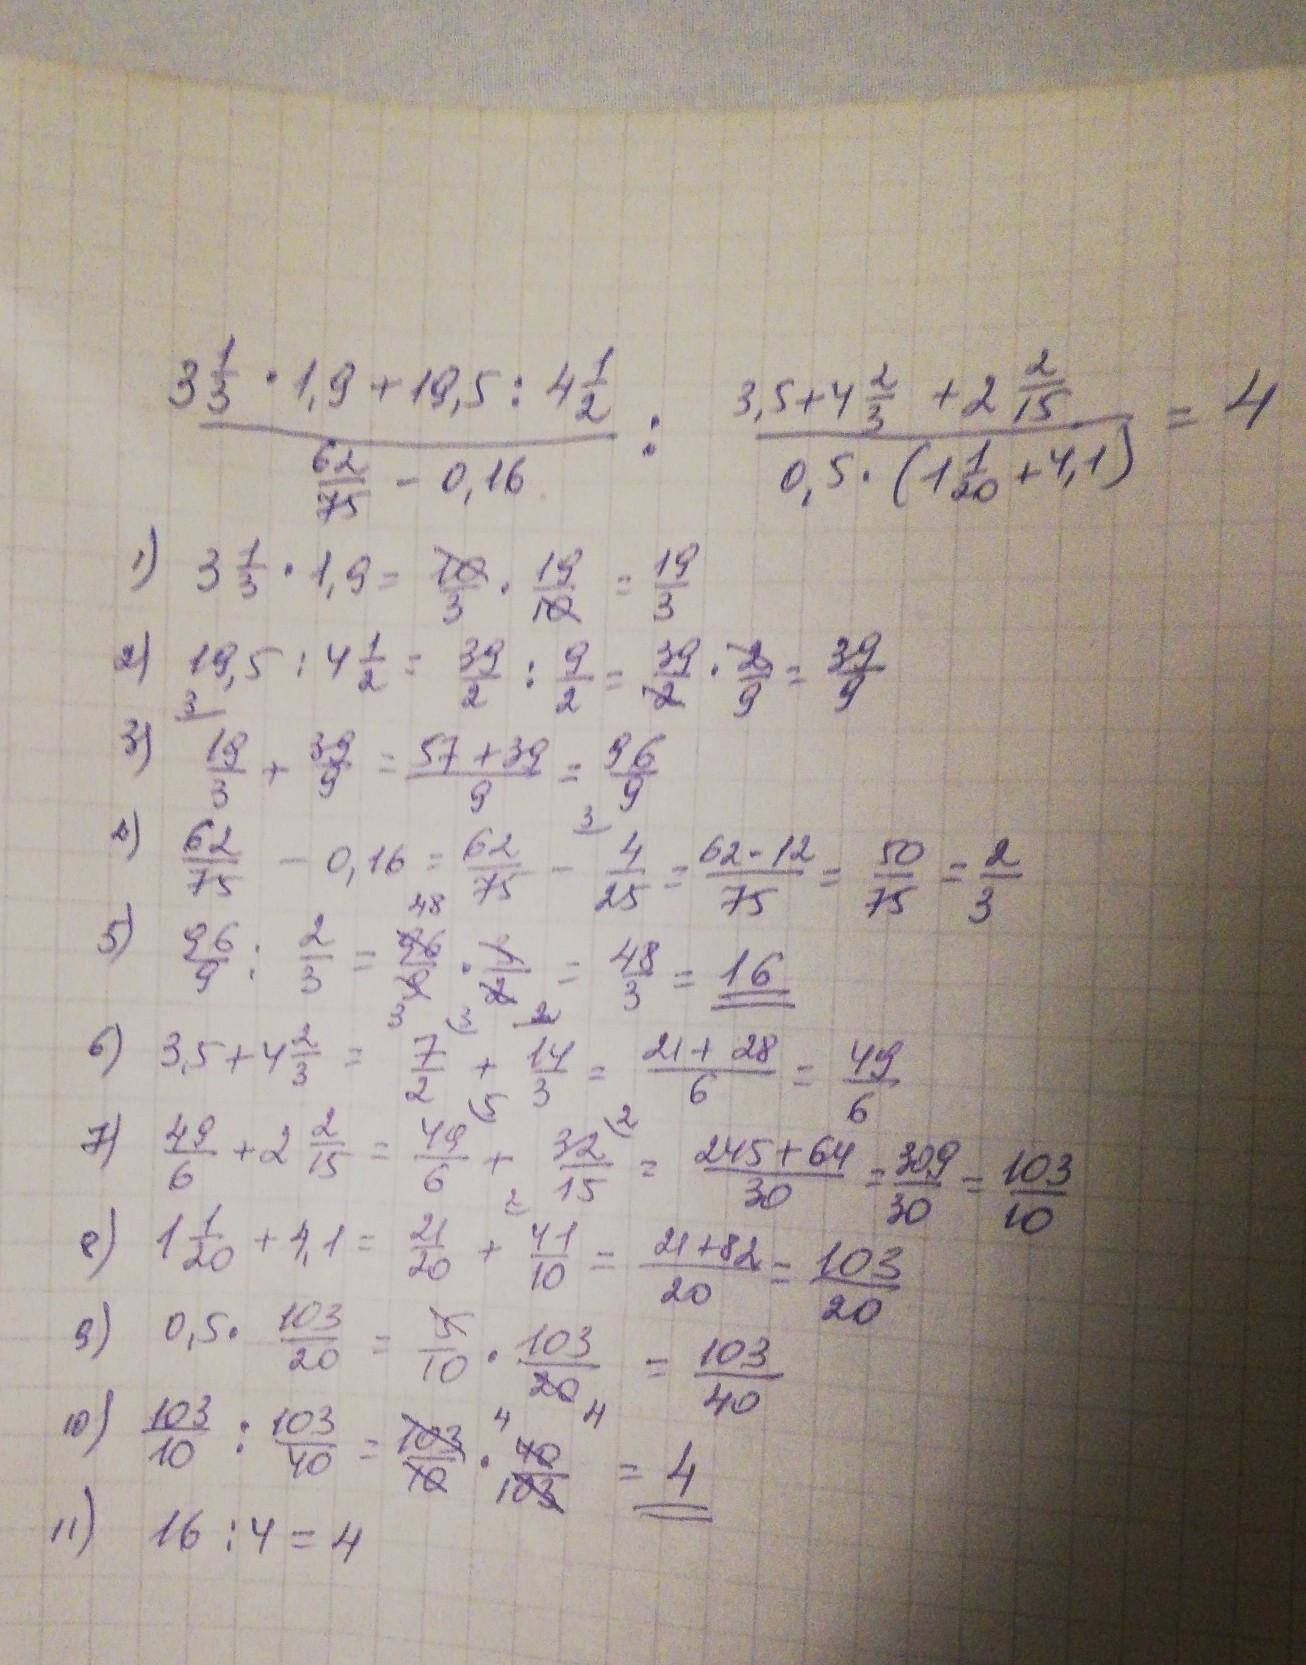 3 1/3 · 1,9 + 19,5 : 4 1/2 / 62/75 - 0,16 : 3,5 + 4 2/3 + 2 2/15 / 0,5 · (1 1/20 + 4,1) = 4
1) 3 1/3 · 1,9 = 10/3 · 19/10 = 19/3
2) 19,5 : 4 1/2 = 39/2 : 9/2 = 39/2 · 2/9 = 39/9
3) 3 19/3 + 39/9 = 57 + 39/9 = 96/9
4) 62/75 - 0,16 = 62/75 - 3 4/25 = 62 - 12/75 = 50/75 = 2/3
5) 96/9 : 2/3 = 48 96/9 3 · 3/2 = 48/3 = 16
6) 3,5 + 4 2/3 = 7/2 (3 + 2 14/3 = 21 + 28/6 = 49/6
7) 49/6 + 2 2/15 = 49/6 (5 + 32/15 (2 = 245 + 64/30 = 309/30 = 103/10
8) 1 1/20 + 4,1 = 21/20 + 2 41/10 = 21 + 82/20 = 103/20
9) 0,5 · 103/20 = 5/10 · 103/20 4 = 103/40
10) 103/10 : 103/40 = 103/10 · 4 40/103 = 4
11) 16 : 4 = 4